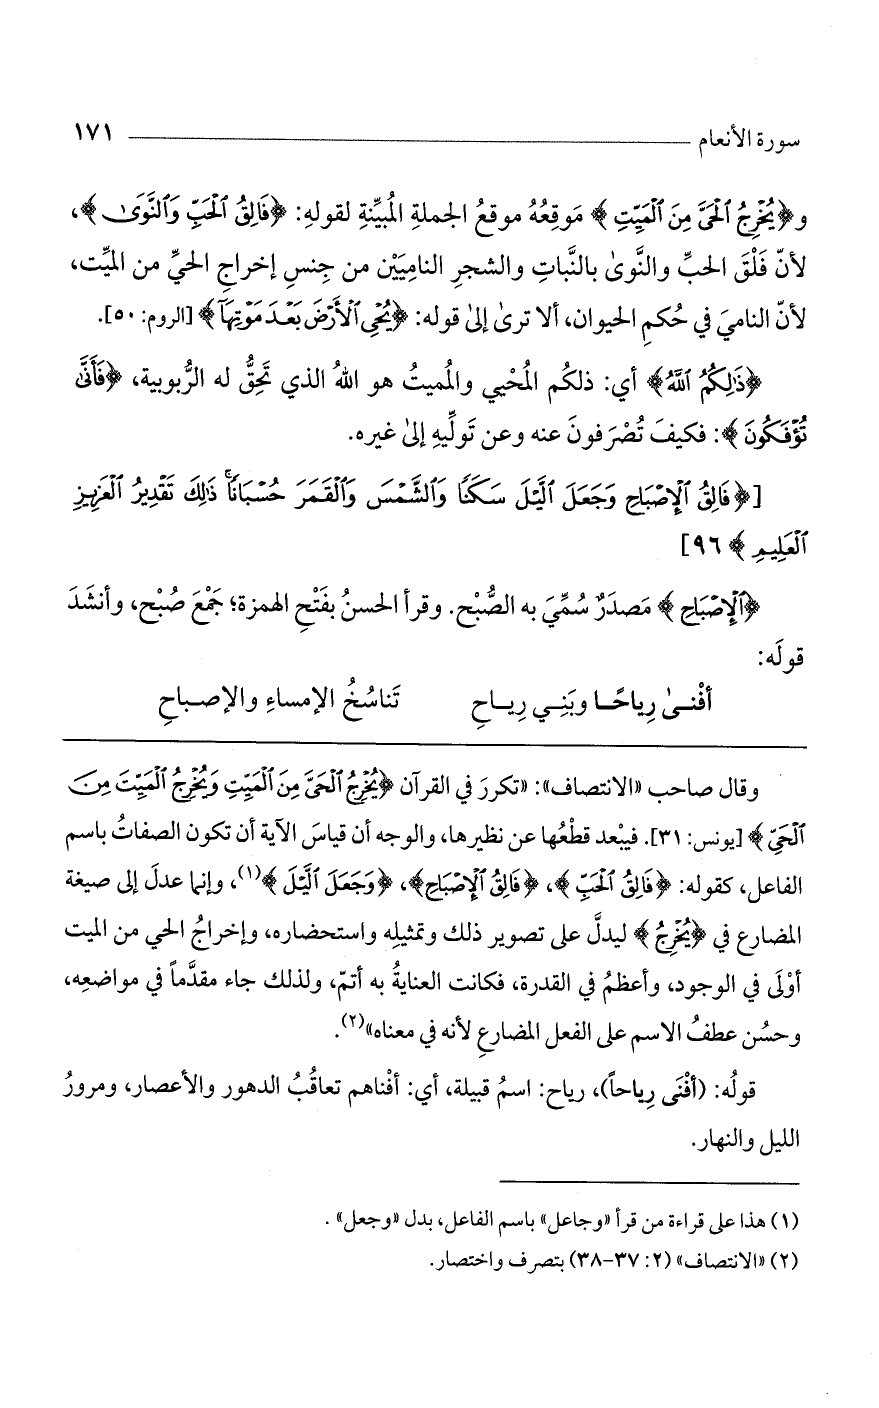 سورة الأنعام ١٧١
و﴿يُخْرِجُ ٱلْحَىَّ مِنَ ٱلْمَيِّتِ﴾ مَوقِعُهُ موقعُ الجملةِ المُبيِّنةِ لقولهِ: ﴿فَالِقُ ٱلْحَبِّ وَٱلنَّوَىٰ﴾،
لأنّ فَلْقَ الحبِّ والنَّوىٰ بالنَّباتِ والشجرِ النامِيَيْن من جِنسِ إخراجِ الحيِّ من الميِّت،
لأنّ الناميَ في حُكمِ الحيوان، ألا ترىٰ إلىٰ قوله: ﴿يُحْىِ ٱلْأَرْضَ بَعْدَ مَوْتِهَآ﴾ [الروم: ٥٠].
﴿ذَٰلِكُمُ ٱللَّهُ﴾ أي: ذلكم المُحْيي والمُميتُ هو اللهُ الذي تَحِقُّ له الرُّبوبية، ﴿فَأَنَّىٰ
تُؤْفَكُونَ﴾: فكيفَ تُصْرَفونَ عنه وعن تَولِّيهِ إلىٰ غيره.
[﴿فَالِقُ ٱلْإِصْبَاحِ وَجَعَلَ ٱلَّيْلَ سَكَنًا وَٱلشَّمْسَ وَٱلْقَمَرَ حُسْبَانًا ۚ ذَٰلِكَ تَقْدِيرُ ٱلْعَزِيزِ
ٱلْعَلِيمِ﴾ ٩٦]
﴿ٱلْإِصْبَاحِ﴾ مَصدَرٌ سُمِّيَ به الصُّبْح. وقرأ الحسنُ بفَتْحِ الهمزة؛ جَمْعَ صُبْح، وأنشَدَ
قولَه:
أفْنـىٰ رِياحًـا وبَنِـي رِيـاحِ تَناسُخُ الإمساءِ والإصـباحِ
وقال صاحب «الانتصاف»: «تكررَ في القرآن ﴿يُخْرِجُ ٱلْحَىَّ مِنَ ٱلْمَيِّتِ وَيُخْرِجُ ٱلْمَيِّتَ مِنَ
ٱلْحَيِّ﴾ [يونس: ٣١]. فيبْعد قطْعُها عن نظيرها، والوجه أن قياسَ الآية أن تكون الصفاتُ باسم
الفاعل، كقوله: ﴿فَالِقُ ٱلْحَبِّ﴾، ﴿فَالِقُ ٱلْإِصْبَاحِ﴾، ﴿وَجَعَلَ ٱلَّيْلَ﴾(١)، وإنما عدلَ إلى صيغة
المضارع في ﴿يُخْرِجُ﴾ ليدلَّ على تصوير ذلك وتمثيلِه واستحضاره، وإخراجُ الحي من الميت
أوْلَى في الوجود، وأعظمُ في القدرة، فكانت العنايةُ به أتمّ، ولذلك جاء مقدَّماً في مواضعِه،
وحسُن عطفُ الاسم على الفعل المضارعِ لأنه في معناه»(٢).
قولُه: (أفْنَى رِياحاً)، رياح: اسمُ قبيلة، أي: أفْناهم تعاقُبُ الدهور والأعصار، ومرورُ
الليل والنهار.
(١) هذا على قراءة من قرأ «وجاعل» باسم الفاعل، بدل «وجعل» .
(٢) «الانتصاف» (٢: ٣٧-٣٨) بتصرف واختصار.